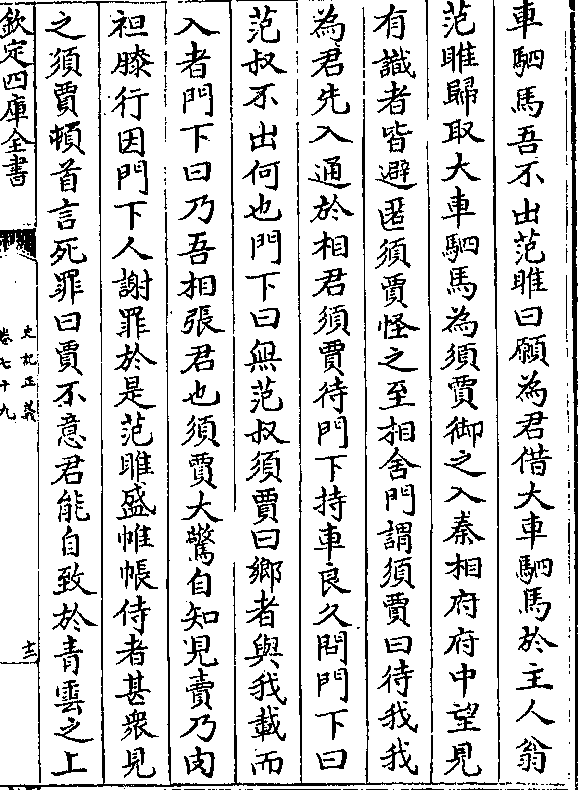 車駟馬吾不出范雎曰願為君借大車駟馬於主人翁
范雎歸取大車駟馬為須賈御之入秦相府府中望見
有識者皆避匿須賈怪之至相舍門謂須賈曰待我我
為君先入通於相君須賈待門下持車良久問門下曰
范叔不出何也門下曰無范叔須賈曰鄉者與我載而
入者門下曰乃吾相張君也須賈大驚自知見賣乃肉
袒膝行因門下人謝罪於是范雎盛帷帳侍者甚衆見
之須賈頓首言死罪曰賈不意君能自致於青雲之上
欽定四庫全書
史記正義
卷七十九
十三